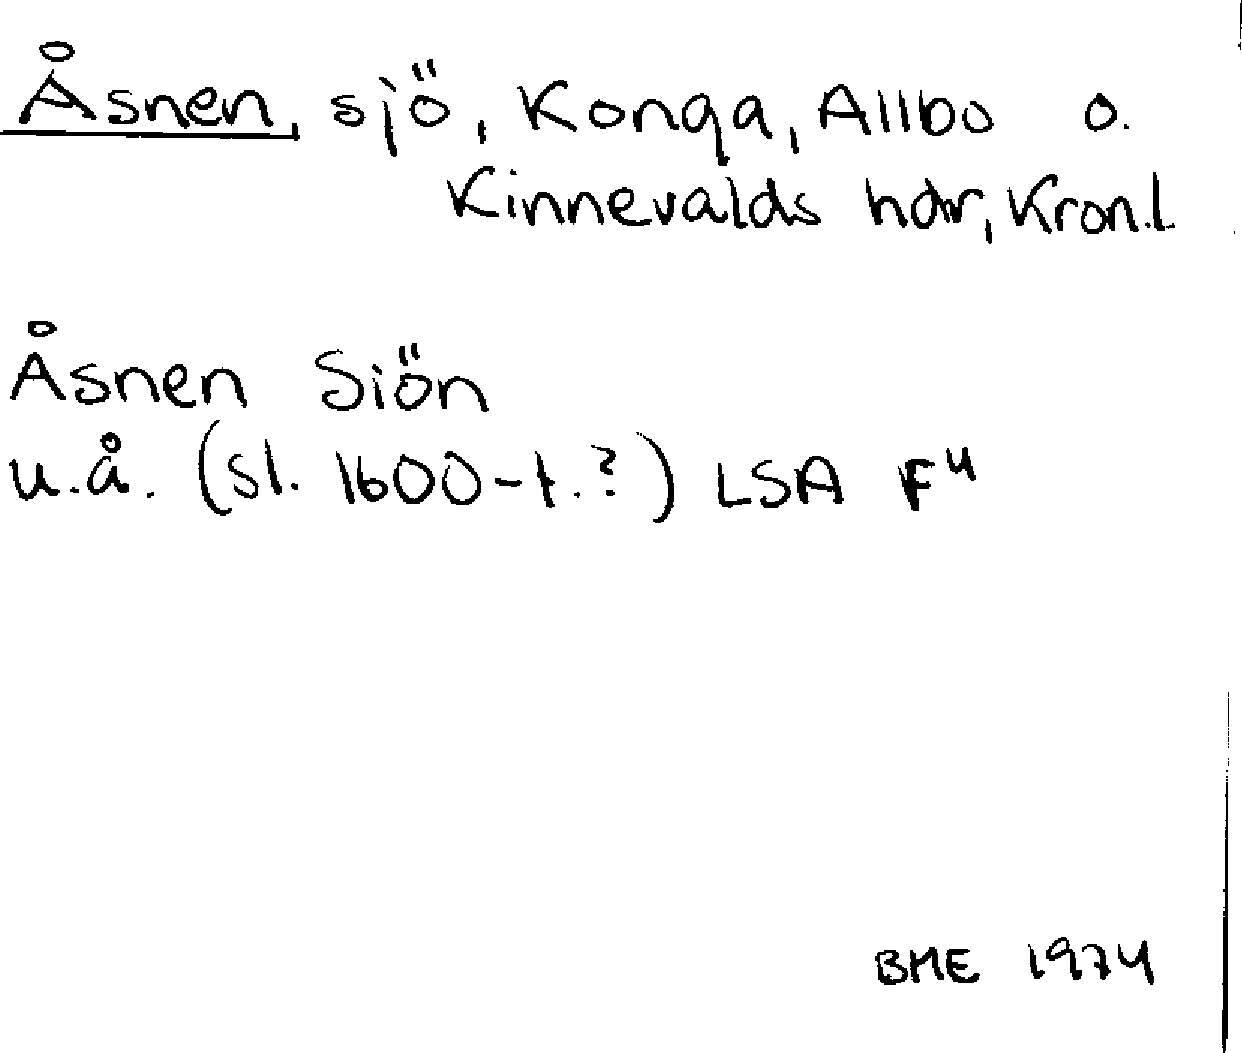 Åsnen, sjö, Konga, Allbo o.
Kinnevalds hdr, Kron.l.
Åsnen Siön
u.å. (sl. 1600-t.?) LSA F4
BME 1974